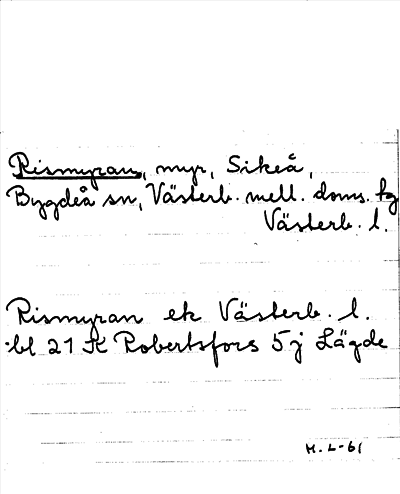 Rismyran, myr, Sikeå,
Bygdeå sn, Västerb. mell. doms. tg
Västerb. l.
Rismyran ek Västerb. l.
bl 21 K Robertsfors 5 j Lägde
H. L-61